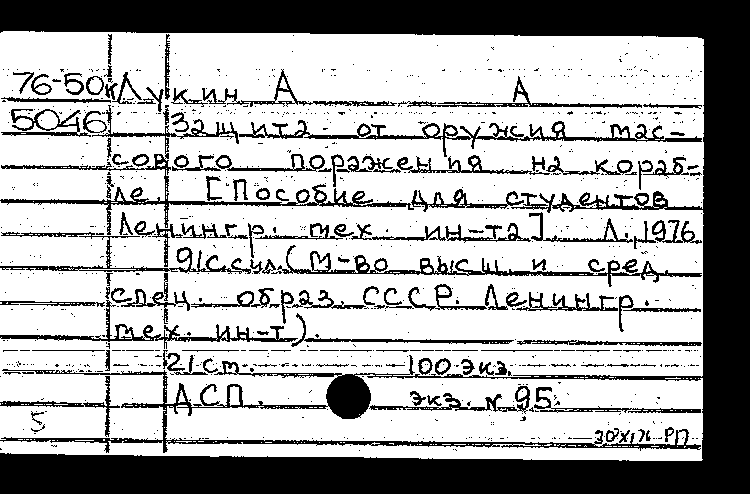 76-50к Лукин А А
5046 Защита от оружия мас-
сового поражения на кораб-
ле. [Пособие для студентов
Ленингр. тех. ин-та]. Л., 1976
91с. с ил. (М-во высш. и сред.
спец. образ. СССР. Ленингр.
тех. ин-т).
21 см. 100 экз.
ДСП. экз. № 95.
5
РП